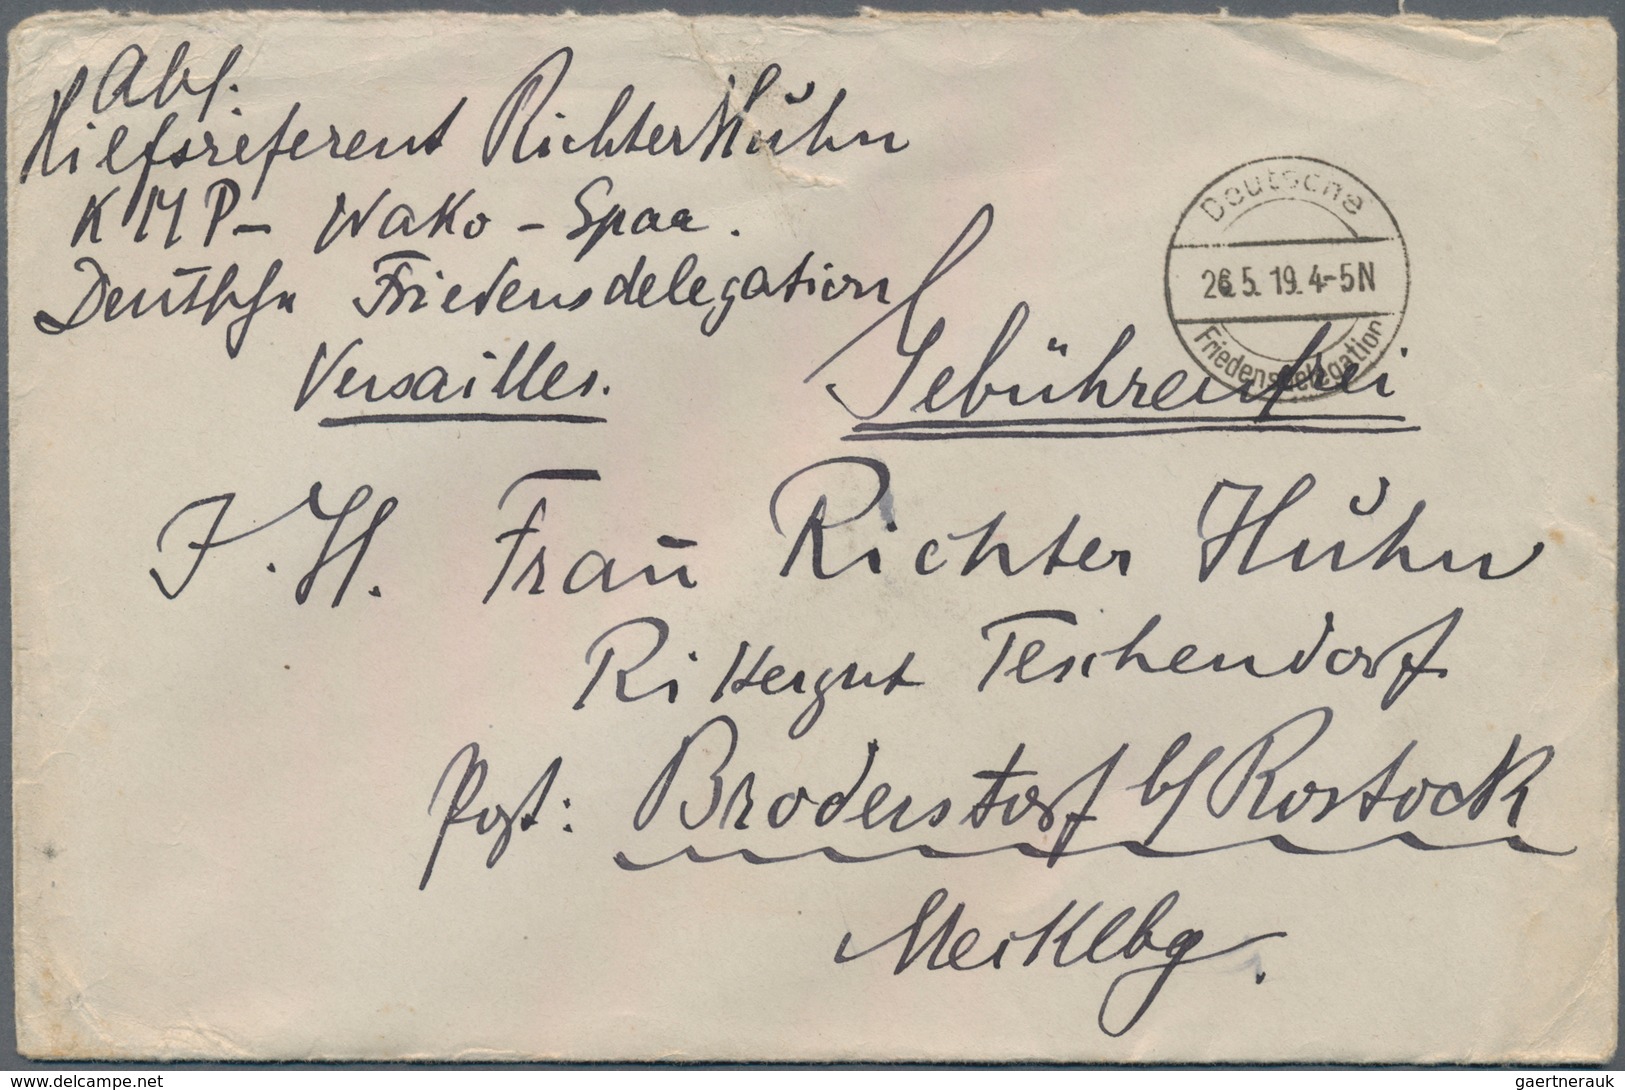 Abs.
Hilfsreferent Richter Huhn
K M P - Wako - Spaa.
Deutsche Friedensdelegation
Versailles.
Deutsche
26.5.19.4-5N
Friedensdelegation
Gebührenfrei
I. H. Frau Richter Huhn
Rittergut Teschendorf
Post: Broderstorf b/ Rostock
Mecklbg.
www.delcampe.net
gaertnerauk